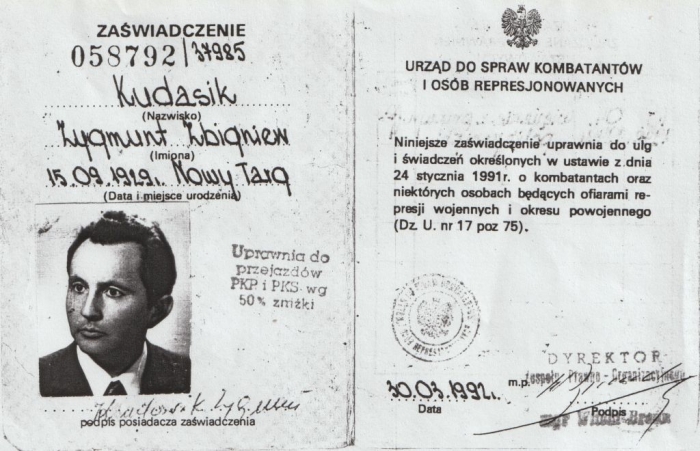 ZAŚWIADCZENIE
058792/37985
Kudasik
(Nazwisko)
Zygmunt Zbigniew
(Imiona)
15.09.1929r. Nowy Targ
(Data i miejsce urodzenia)
Uprawnia do
przejazdów
PKP i PKS wg
50% zniżki
podpis posiadacza zaświadczenia
URZĄD DO SPRAW KOMBATANTÓW
I OSÓB REPRESJONOWANYCH
Niniejsze zaświadczenie uprawnia do ulg
i świadczeń określonych w ustawie z dnia
24 stycznia 1991r. o kombatantach oraz
niektórych osobach będących ofiarami re-
presji wojennych i okresu powojennego
(Dz. U. nr 17 poz 75).
DYREKTOR
Zespołu Prawno-Organizacyjnego
30.03.1992r. m.p.
Data Podpis
mgr